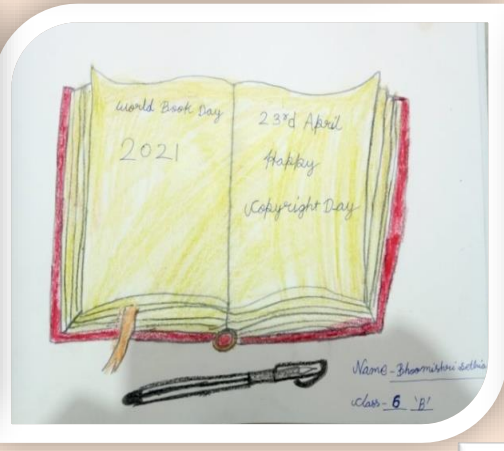 World Book Day
2021
23rd April
Happy
Copyright Day
Name - Bhoomishri Sethia
Class - 6 'B'